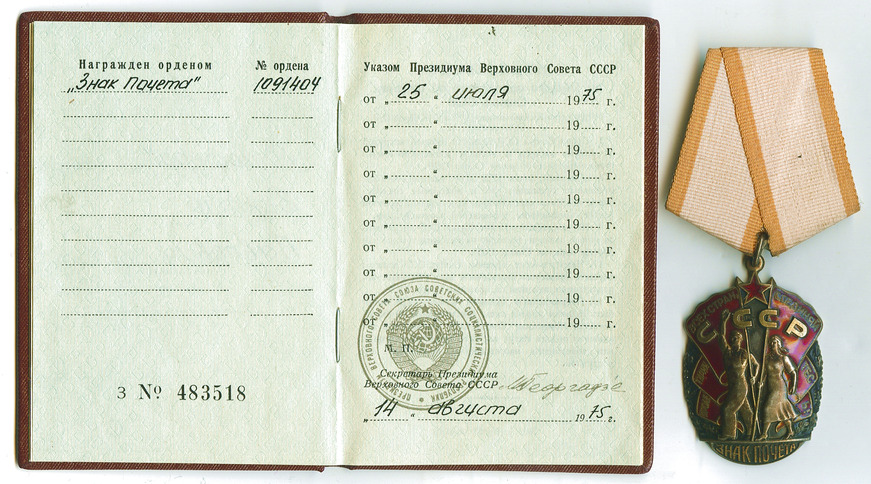 Награжден орденом
№ ордена
„Знак Почета"
1091404
З № 483518
Указом Президиума Верховного Совета СССР
от „ 25 " июля 1975 г.
от „ " 19 г.
от „ " 19 г.
от „ " 19 г.
от „ " 19 г.
от „ " 19 г.
от „ " 19 г.
от „ " 19 г.
от „ " 19 г.
от „ " 19 г.
М. П.
Секретарь Президиума
Верховного Совета СССР
М Георгадзе
„ 14 " августа 1975 г.
ВЕРХОВНОГО СОВЕТА СОЮЗА СОВЕТСКИХ СОЦИАЛИСТИЧЕСКИХ РЕСПУБЛИК
СССР
ЗНАК ПОЧЕТА